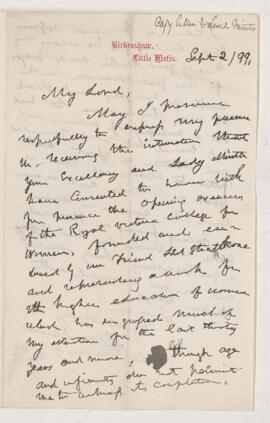 Copy letter to Lord Minto
Birkenshaw,
Little Metis.
Sept 2/99,
My Lord,
May I presume
respectfully to express my pleasure
in receiving the intimation that
your Excellency and Lady Minto
have consented to honour with
your presence the opening exercises
of the Royal Victoria College for
Women, founded and en-
dowed by our Friend Lord Strathcona
and representing a work for
the higher education of women
which has engaged much of
my attention for the last thirty
years and more, though age
and infirmity do not permit
me to its completion.